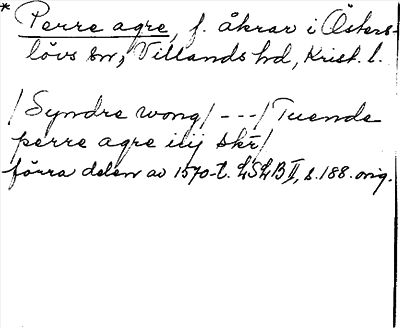 * Perre agre, f. åkrar i Östers-
lövs sn, Villands hd, Krist. l.
/Syndre wong/ - - - /Tuende
perre agre iiij skr/
förra delen av 1570-t. LSLB II, s. 188. orig.